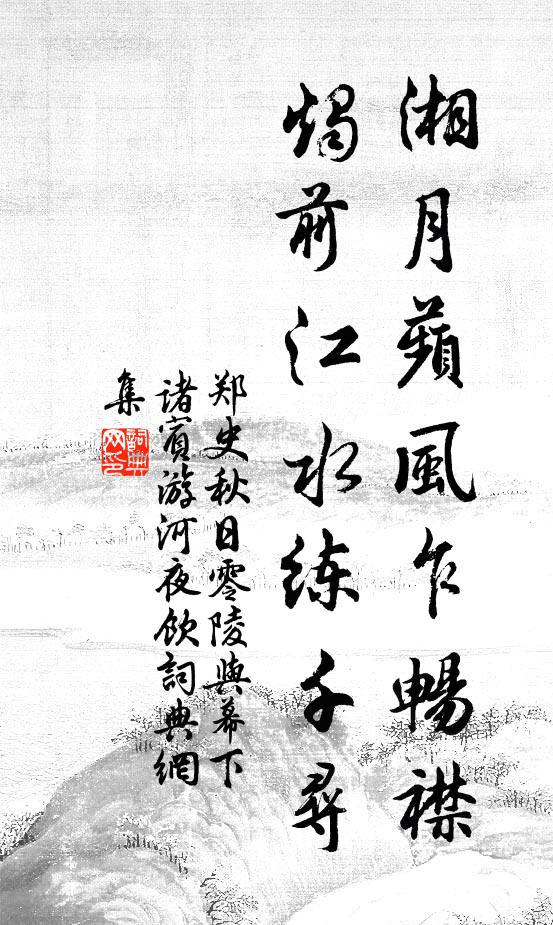 湘月蘋風乍暢襟
燭前江水练千尋
郑史秋日零陵與幕下
諸賓游河夜飲詞典網
集
詞典网